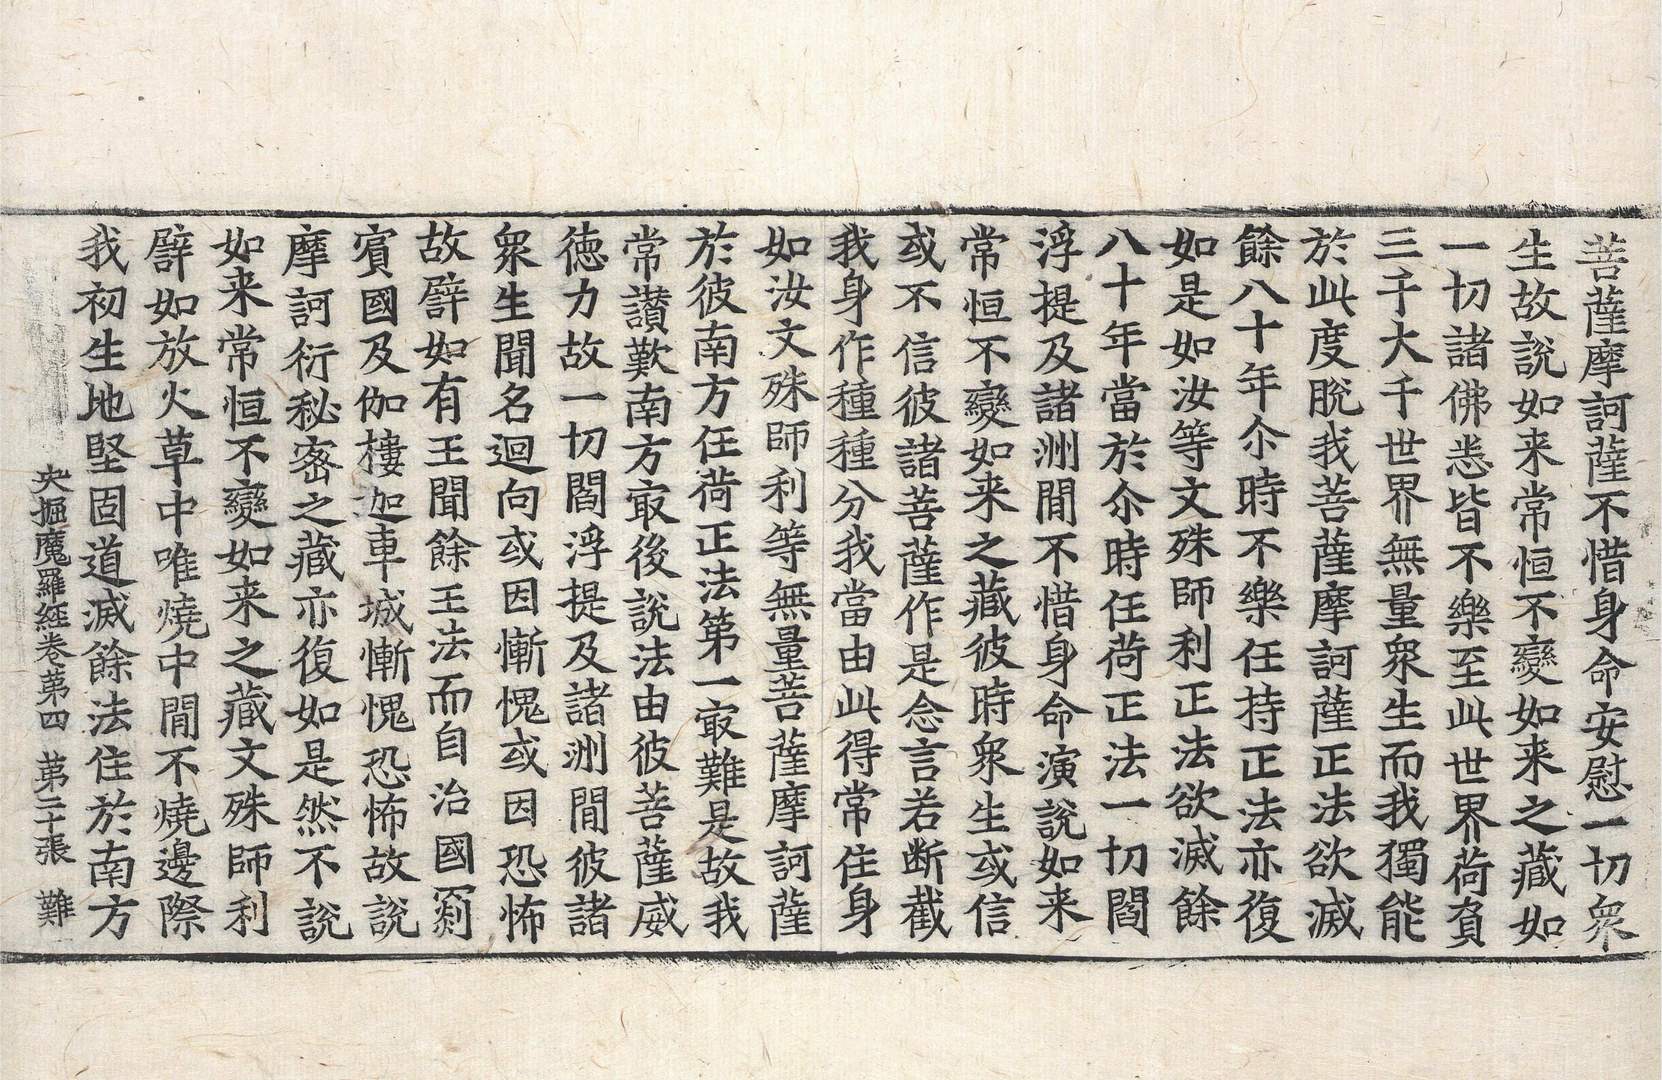 菩薩摩訶薩不惜身命安慰一切衆
生故說如来常恒不變如来之藏如
一切諸佛悉皆不樂至此世界荷負
三千大千世界無量衆生而我獨能
於此度脫我菩薩摩訶薩正法欲滅
餘八十年尒時不樂任持正法亦復
如是如汝等文殊師利正法欲滅餘
八十年當於尒時任荷正法一切閻
浮提及諸洲間不惜身命演說如来
常恒不變如来之藏彼時衆生或信
或不信彼諸菩薩作是念言若断截
我身作種種分我當由此得常住身
如汝文殊師利等無量菩薩摩訶薩
於彼南方任荷正法第一㝡難是故我
常讃歎南方㝡後說法由彼菩薩威
德力故一切閻浮提及諸洲間彼諸
衆生聞名迴向或因慚愧或因恐怖
故譬如有王聞餘王法而自治國罽
賓國及伽樓迦車城慚愧恐怖故說
摩訶衍秘密之藏亦復如是然不說
如来常恒不變如来之藏文殊師利
譬如放火草中唯燒中間不燒邊際
我初生地堅固道滅餘法住於南方
央掘魔羅經卷第四　第二十張　難